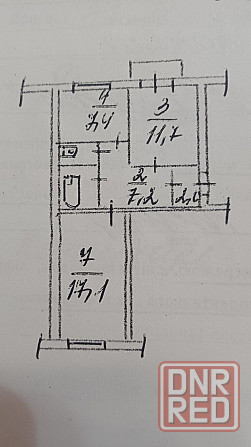 4
7,4
3
11,7
2
7,2
2,4
7
17,1
DNR
RED